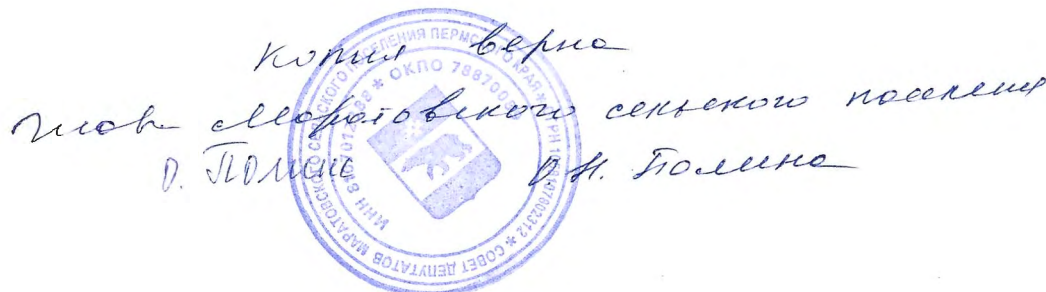 Копия верна
Глава Маратовского сельского поселения
О. Полина О.Н. Полина
СОВЕТ ДЕПУТАТОВ МАРАТОВСКОГО СЕЛЬСКОГО ПОСЕЛЕНИЯ ПЕРМСКОГО КРАЯ
ИНН * ОКПО